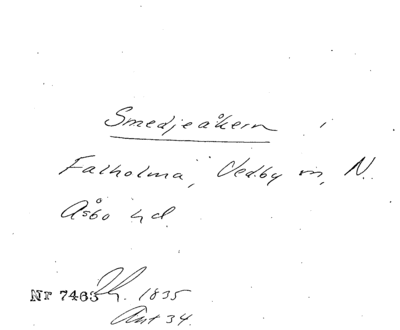 Smedjeåkern i
Falholma, Vedby sn, N.
Åsbo hd.
Nr 7463 1835
Akt 34.